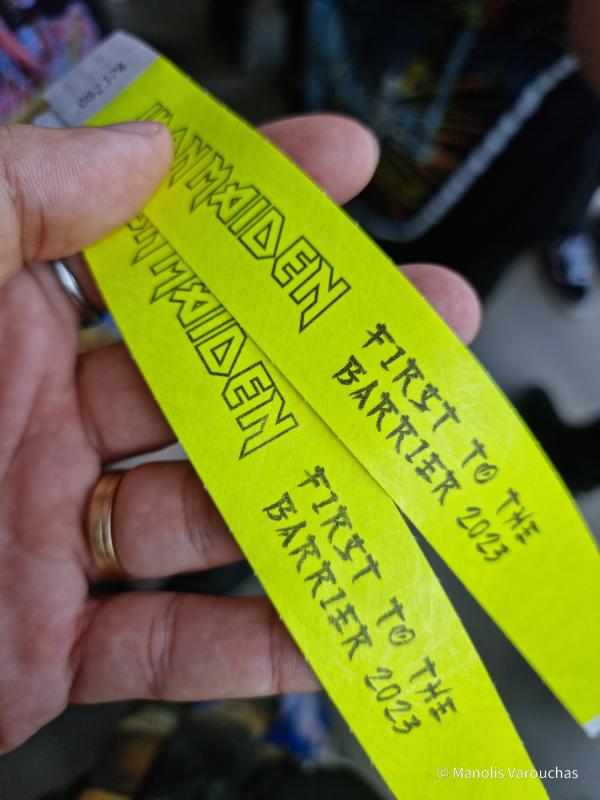 082398
IRON MAIDEN
FIRST TO THE
BARRIER 2023
MAIDEN
FIRST TO THE
BARRIER 2023
© Manolis Varouchas